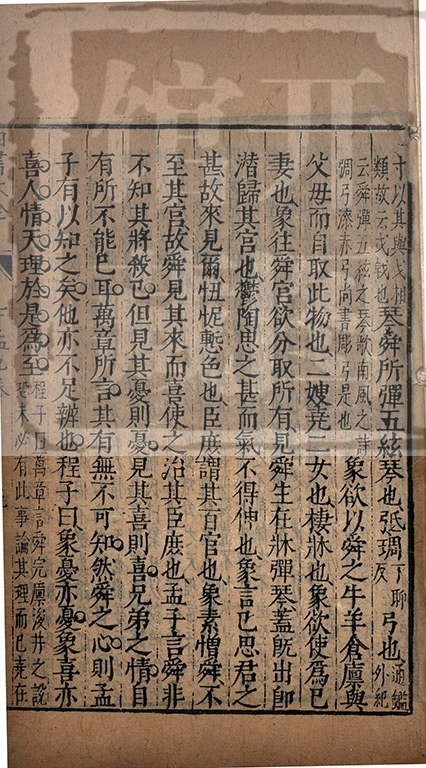 寸以其與戈相類故云戈戟也琴舜所彈五絃琴也弤琱丁聊反弓也通鑑外紀
云舜彈五絃之琴歌南風之詩琱弓漆赤弓尚書彫弓是也象欲以舜之牛羊倉廩與
父母而自取此物也二嫂堯二女也棲牀也象欲使爲己
妻也象往舜宮欲分取所有見舜生在牀彈琴蓋旣出卽
潛歸其宮也鬱陶思之甚而氣不得伸也象言己思君之
甚故來見爾忸怩慙色也臣庶謂其百官也象素憎舜不
至其宮故舜見其來而喜使之治其臣庶也孟子言舜非
不知其將殺己但見其憂則憂見其喜則喜兄弟之情自
有所不能已耳萬章所言其有無不可知然舜之心則孟
子有以知之矣他亦不足辨也程子曰象憂亦憂象喜亦
喜人情天理於是爲至程子曰萬章言舜完廩浚井之說恐未必有此事論其理而已堯在